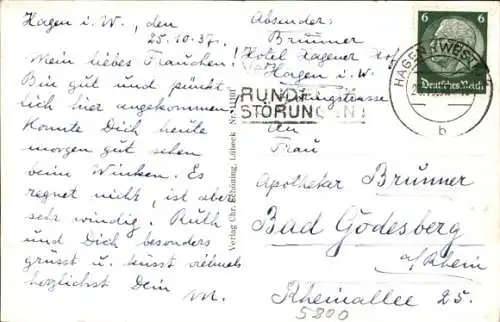 Hagen i. W., den
25.10.37.
Mein liebes Frauchen!
Bin gut und pünkt-
lich hier angekommen.
Konnte Dich heute
morgen gut sehen
beim Winken. Es
regnet nicht, ist aber
sehr windig. Ruth
und Dich besonders
grüsst u. küsst vielmals
herzlichst Dein
M.
Verlag Chr. Schöning, Lübeck Nr.
Absender:
Brunner
Hotel Hagener Hof
Hagen i. W.
RUNDF
STÖRUNGEN
An
Frau
Apotheker Brunner
Bad Godesberg
a/Rhein
Rheinallee 25.
5300
6 6
Deutsches Reich
HAGEN (WESTF
b